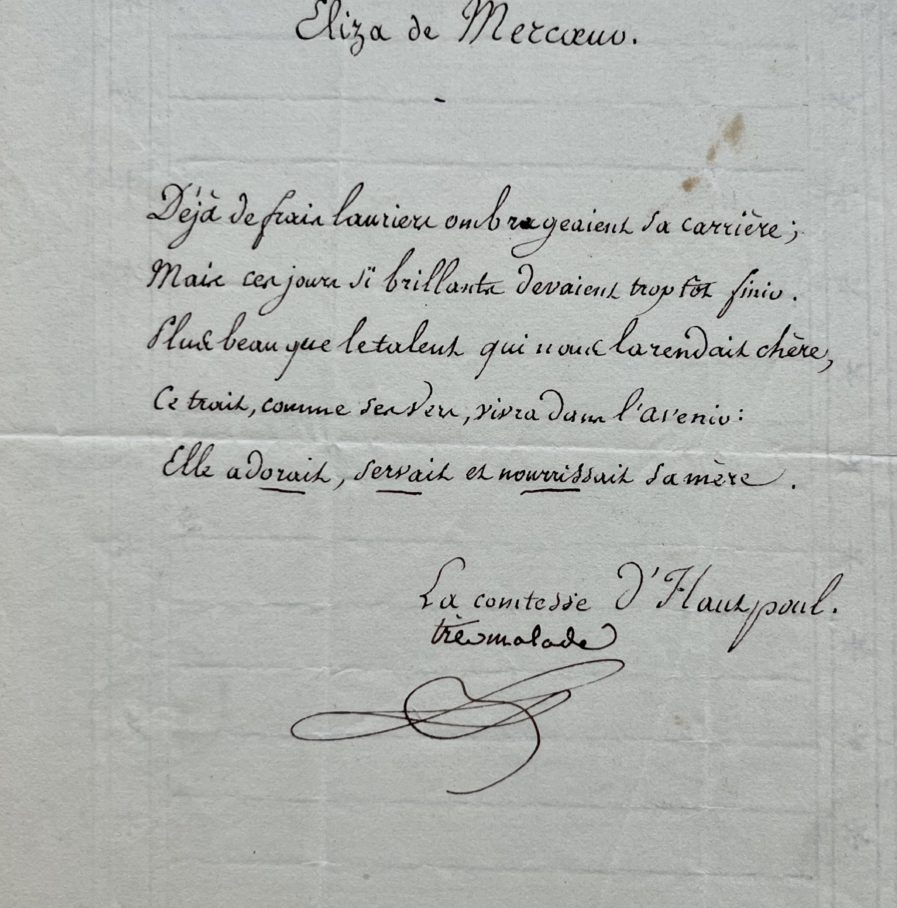 Eliza de Mercœur.
Déjà de frais lauriers ombrageaient sa carrière;
Mais ces jours si brillants devaient trop tôt finir.
Plus beau que le talent qui nous la rendait chère,
Ce trait, comme ses vers, vivra dans l'avenir:
Elle adorait, servait et nourrissait sa mère.
La comtesse d'Hautpoul.
très malade